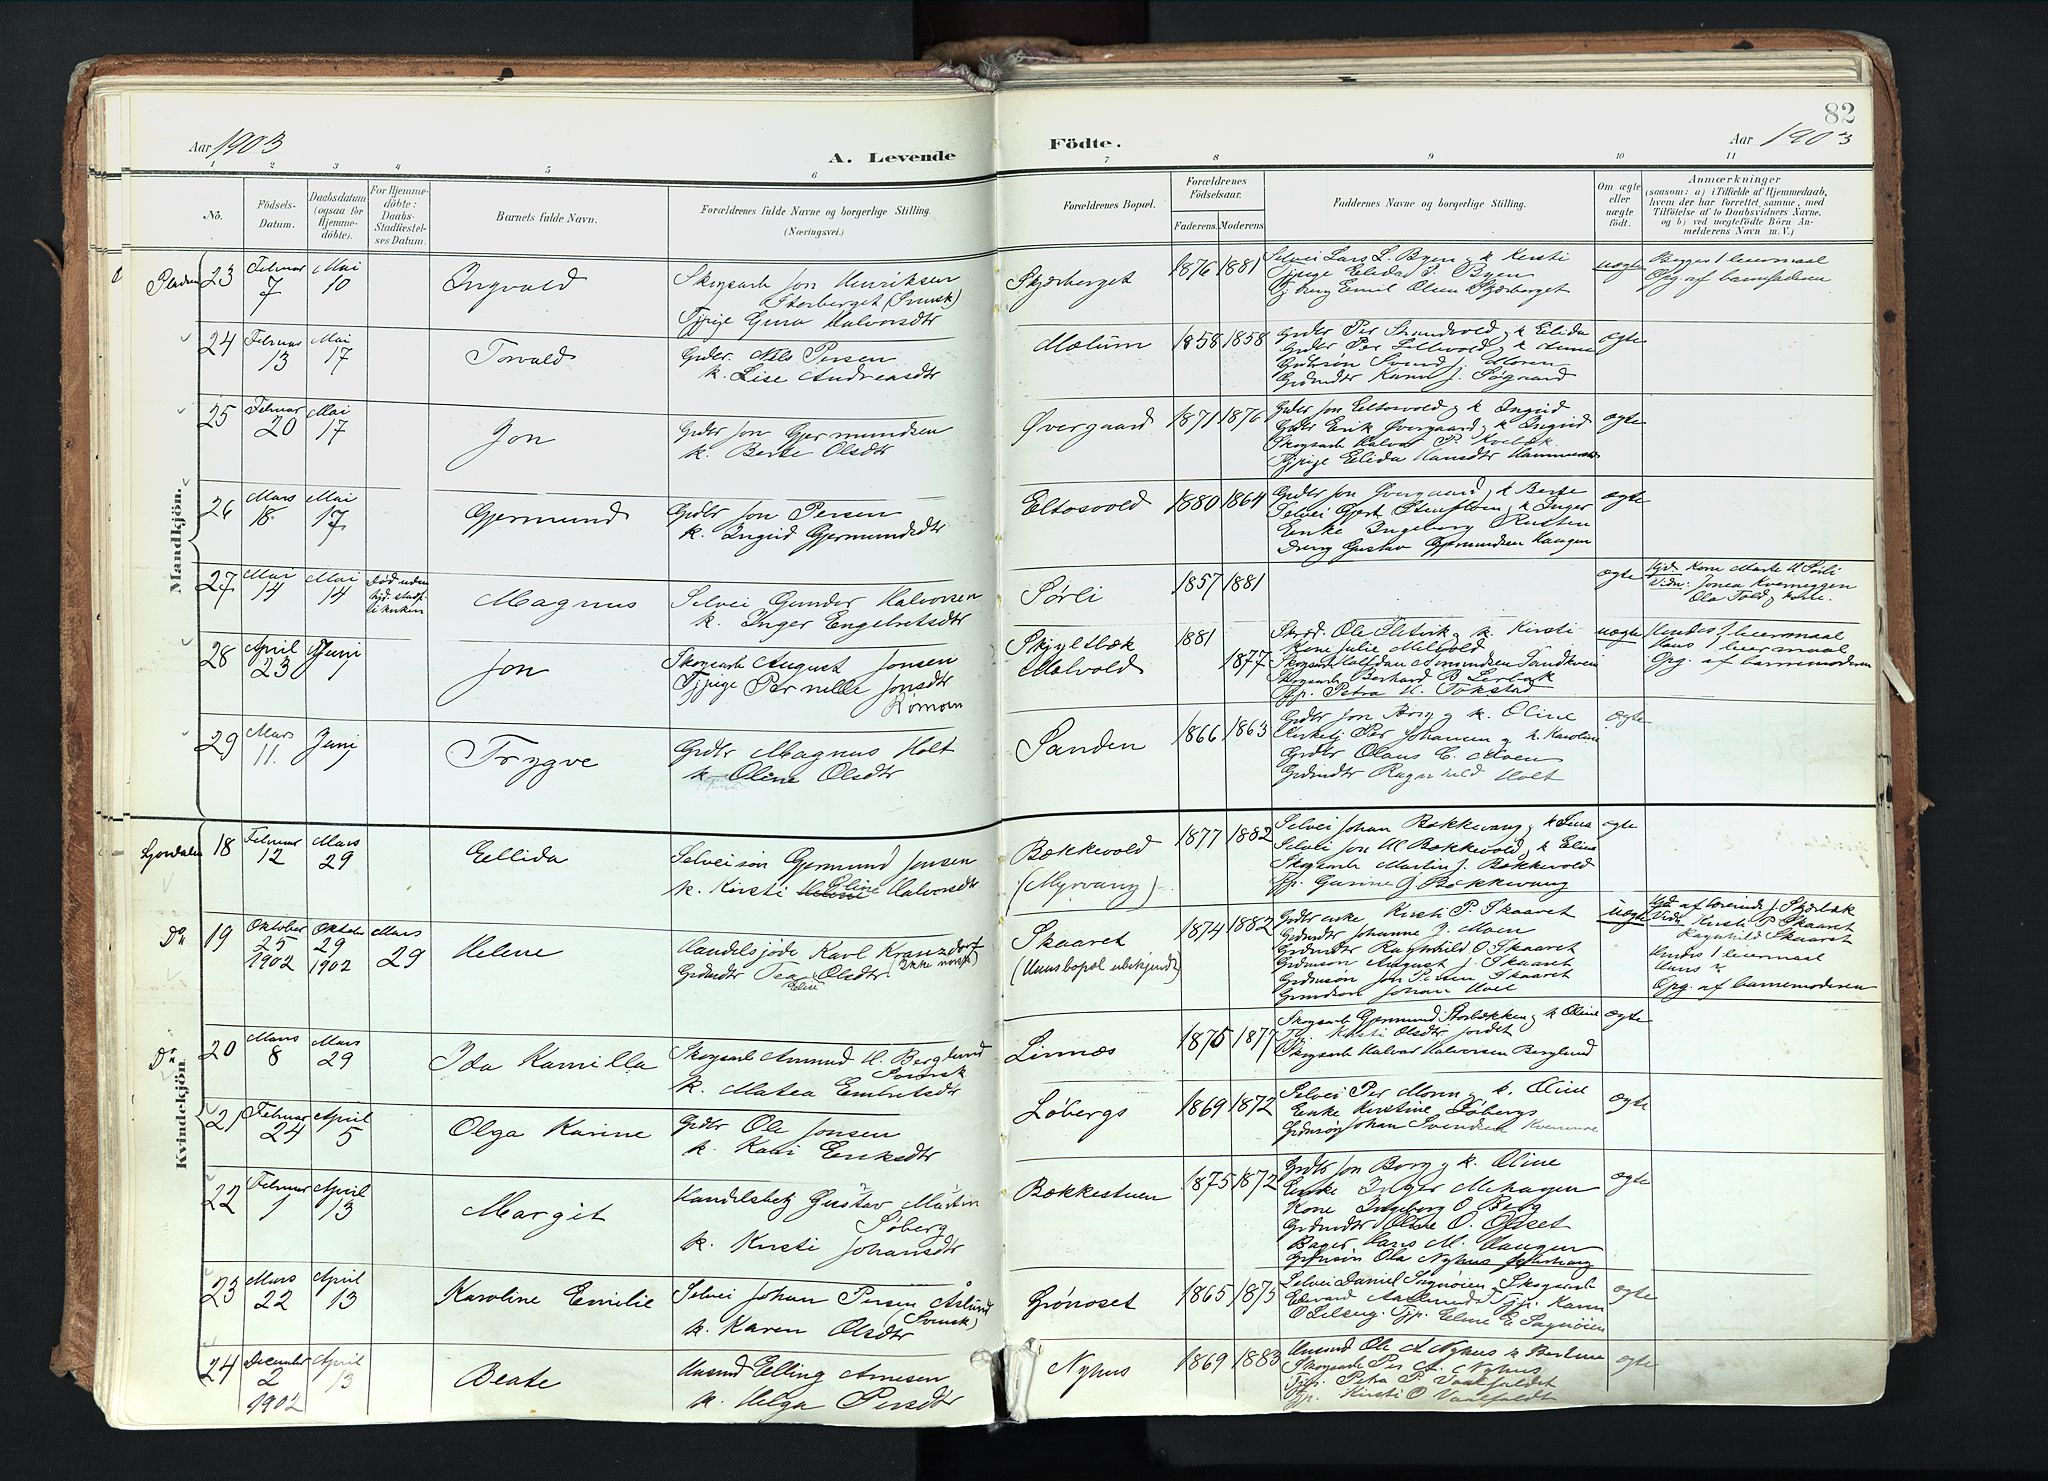 82
Aar 1903
A. Levende
Födte.
Aar 1903
1 2 3 4 5 6 7 8 9 10 11
No.
Födsels-
Datum.
Daabsdatum
(ogsaa for
Hjemme-
döbte).
For Hjemme-
döbte:
Daabs-
Stadfæstel-
ses Datum.
Barnets fulde Navn.
Forældrenes fulde Navne og borgerlige Stilling.
(Næringsvei.)
Forældrenes Bopæl.
Forældrenes
Födselsaar.
Faderens. Moderens.
Faddernes Navne og borgerlige Stilling.
Om ægte
eller
uægte
födt.
Anmærkninger
(saasom: a) i Tilfælde af Hjemmedaab,
hvem der har forrettet samme, med
Tilföielse af to Daabsvidners Navne,
og b) ved uægtefödte Börn An-
melderens Navn m. V.)
Mandkjön.
23 Februar 7 Mai 10 Ingvald
Skogsarb Jon Henriksen
Storberget (Svensk)
Tjpige Gina Halvorsdtr
Skjærberget 1876 1881
Selvei Lars L. Byen & k Kirsti
Tjpige Elida P. Byen
Tj dreng Emil Olsen Skjærberget
uægte
Begges 1 leiermaal
Opg. af barnefaderen
24 Februar 13 Mai 17 Torvald
Grdbr. Nils Persen
k. Lise Andreasdtr
Mælum 1858 1858
Grdbr Per Strandvold & k Elida
Grdbr Per Lillevold & k Anne
Grdbrsøn Svend J. Moren
Grdmdtr Karen J. Søgaard
ægte
25 Februar 20 Mai 17 Jon
Grdbr Jon Gjermundsen
k. Berte Olsdtr
Øvergaard 1871 1876
Grdbr Jon Eltosvold & k Ingrid
Grdbr Erik Øvergaard & k Ingrid
Skogsarb Halvor P. Kvebæk
Tjpige Elida Hansdtr
ægte
26 Mars 18 Mai 17 Gjermund
Grdbr Jon Persen
k. Ingrid Gjermundsdtr
Eltosvold 1880 1864
Grdbr Jon Øvergaard & k Berte
Selvei Gjert & k Inger
Enke Ingeborg Rusten
Dreng Gustav Gjermundsen Haugen
ægte
27 Mai 14 Mai 14
Død uden
hjd. stadf.
i kirken
Magnus
Selvei Gunder Halvorsen
k. Inger Engebretsdtr
Sørli 1857 1881
ægte
Hjd. Kone Marte H Sørli
Vidn: Jonea Kverneggen
Ola Fold & kone.
28 April 23 Juni 1 Jon
Skogsarb August Jonsen
Tjpige Pernille Jonsdtr
Rømoen
Skjyltbæk
Mælvold
1881
1877
Skrd. Ole & k. Kirsti
Kone Julie Melvold
Skogsarb Halfdan Amundsen Sandkveen
Skogsarb Berhard B Lerbæk
Tjp. Petra H. Tokstad
uægte
Hendes 1 leiermaal
Hans 1 leiermaal
Opg. af barnemoderen
29 Mars 11. Juni 1 Trygve
Grdbr Magnus Holt
k Oline Olsdtr
Sanden 1866 1863
Grdbr Jon Berg & k. Oline
Kirketj Per Johansen & k. Karoline
Grdbr Olaus E. Moen
Grdmdtr Ragnhild Holt
ægte
Kvindekjön
18 Februar 12 Mars 29 Ellida
Selveisøn Gjermund Jonsen
k. Kirsti Oline Halvorsdtr
Bækkevold
(Myrvang)
1877 1882
Selvei Johan Bækkevang & k Lina
Selvei Jon H Bækkevold & k Eline
Skogsarb Martin J. Bækkevold
Tjp. Gunine J Bækkevang
ægte
Do 19 Oktober 25 1902 Oktober 29 1902 Mars 29 Helene
Handelsjøde Karl Kranzdorf
(ikke norsk)
Grdmdtr Tea Olsdtr
Elise
Skaaret
(Hans bopæl ubekjendt)
1874 1882
Grdbr enke Kirsti P. Skaaret
Grdmdtr Johanne J. Moen
Grdmdtr Ragnhild O. Skaaret
Grdmsøn August J. Skaaret
Grdmsøn Jon Persen Skaaret
Grmdsøn Johan Holt
uægte
Hjd af lærerinde J. Skjærbæk
Vidn Kirsti P. Skaaret
Ragnhild Skaaret
Hendes 1 leiermaal
Hans ?
Opg. af barnemoderen
Do 20 Mars 8 Mars 29 Ida Kamilla
Skogsarb Amund H. Berglund
Svensk
k. Matea Embretsdtr
Linnæs 1875 1877
Skogsarb Gjermund Storbækken & k Oline
Tj. Kirsti Olsdtr Jordet
Skogsarb Halvor Halvorsen Berglund
ægte
21 Februar 24 April 5 Olga Karine
Grdbr Ole Jonsen
k. Kari Eriksdtr
Løbergs 1869 1872
Selvei Per Moren & k. Oline
Enke Kirstine Løbergs
Grdmsøn Johan Svendsen
ægte
22 Februar 1 April 13 Margit
Handelsbetj Gustav Martin
Søberg
k. Kirsti Johansdtr
Bækkestuen 1875 1872
Grdbr Jon Berg & k. Oline
Enke Inger Mehagen
Kone Ingeborg O Berg
Grdmdtr Olste O. Oldset
Bager Hans M. Haugen
Grdmsøn Ola Nyhus
ægte
23 Mars 22 April 13 Karoline Emilie
Selvei Johan Persen Aslund
(Svensk)
k. Karen Olsdtr
Grønoset 1865 1875
Selvei Daniel Sagmoien Skogsarb
Edevard Tjp. Karen
O Lilseng. Tjp. Eline E Sagmoien
ægte
24 December 2 1902 April 13 Beate
Husmd Elling Arnesen
k. Helga Persdtr
Nyhus 1869 1883
Husmd Ole A Nyhus & k Berline
Skogsarb Per A. Nyhus
Tjp. Petra P. Vaalfaldet
Tjp. Kirsti O Vaalfaldt
ægte